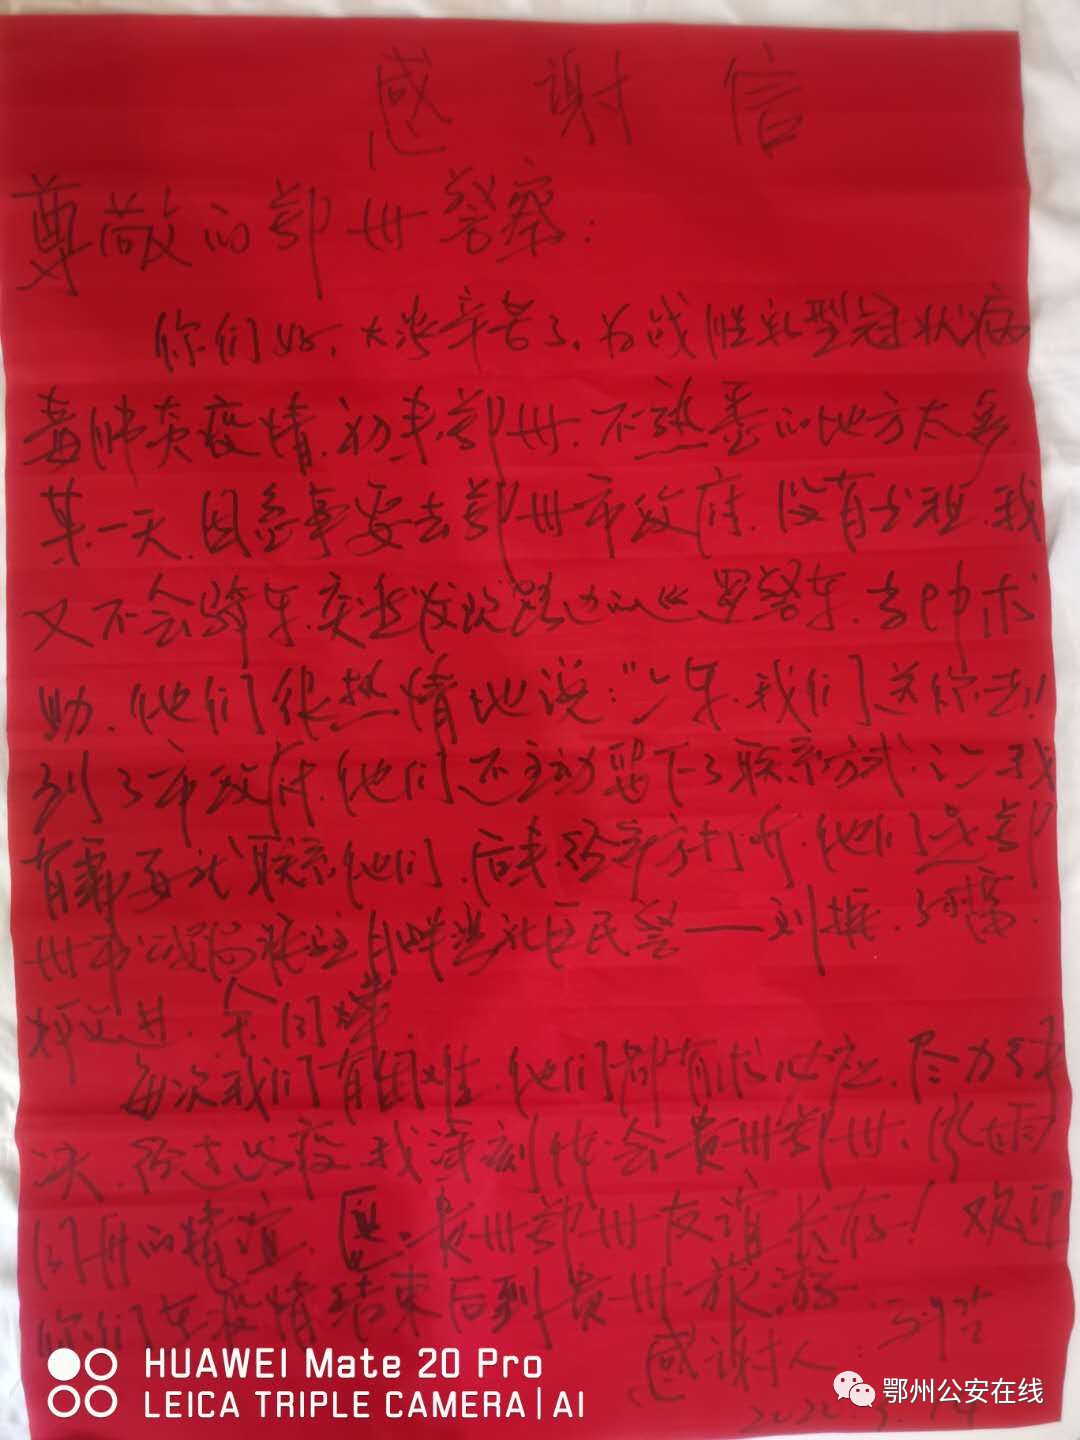 感谢信
尊敬的鄂州警察:
你们好,大家辛苦了,为战胜新型冠状病
毒肺炎疫情,初来鄂州,不熟悉的地方太多,
某一天,因急事要去鄂州市政府,没有出租,我
又不会骑车,突然发现路边的巡逻警车,去请求
助,他们很热情地说:"上车,我们送你去!
到了市政府,他们还主动留下了联系方式,让我
有需要就联系他们,后来,经多方打听,他们是鄂
州市公安局 社区民警——刘振,
每次我们有困难,他们都有求必应,尽力解
决,经过此疫我深刻体会贵州鄂州,风雨
同舟的情谊, 贵州鄂州友谊长存!欢迎
你们在疫情结束后到贵州旅游
感谢人:
HUAWEI Mate 20 Pro
LEICA TRIPLE CAMERA | AI
鄂州公安在线